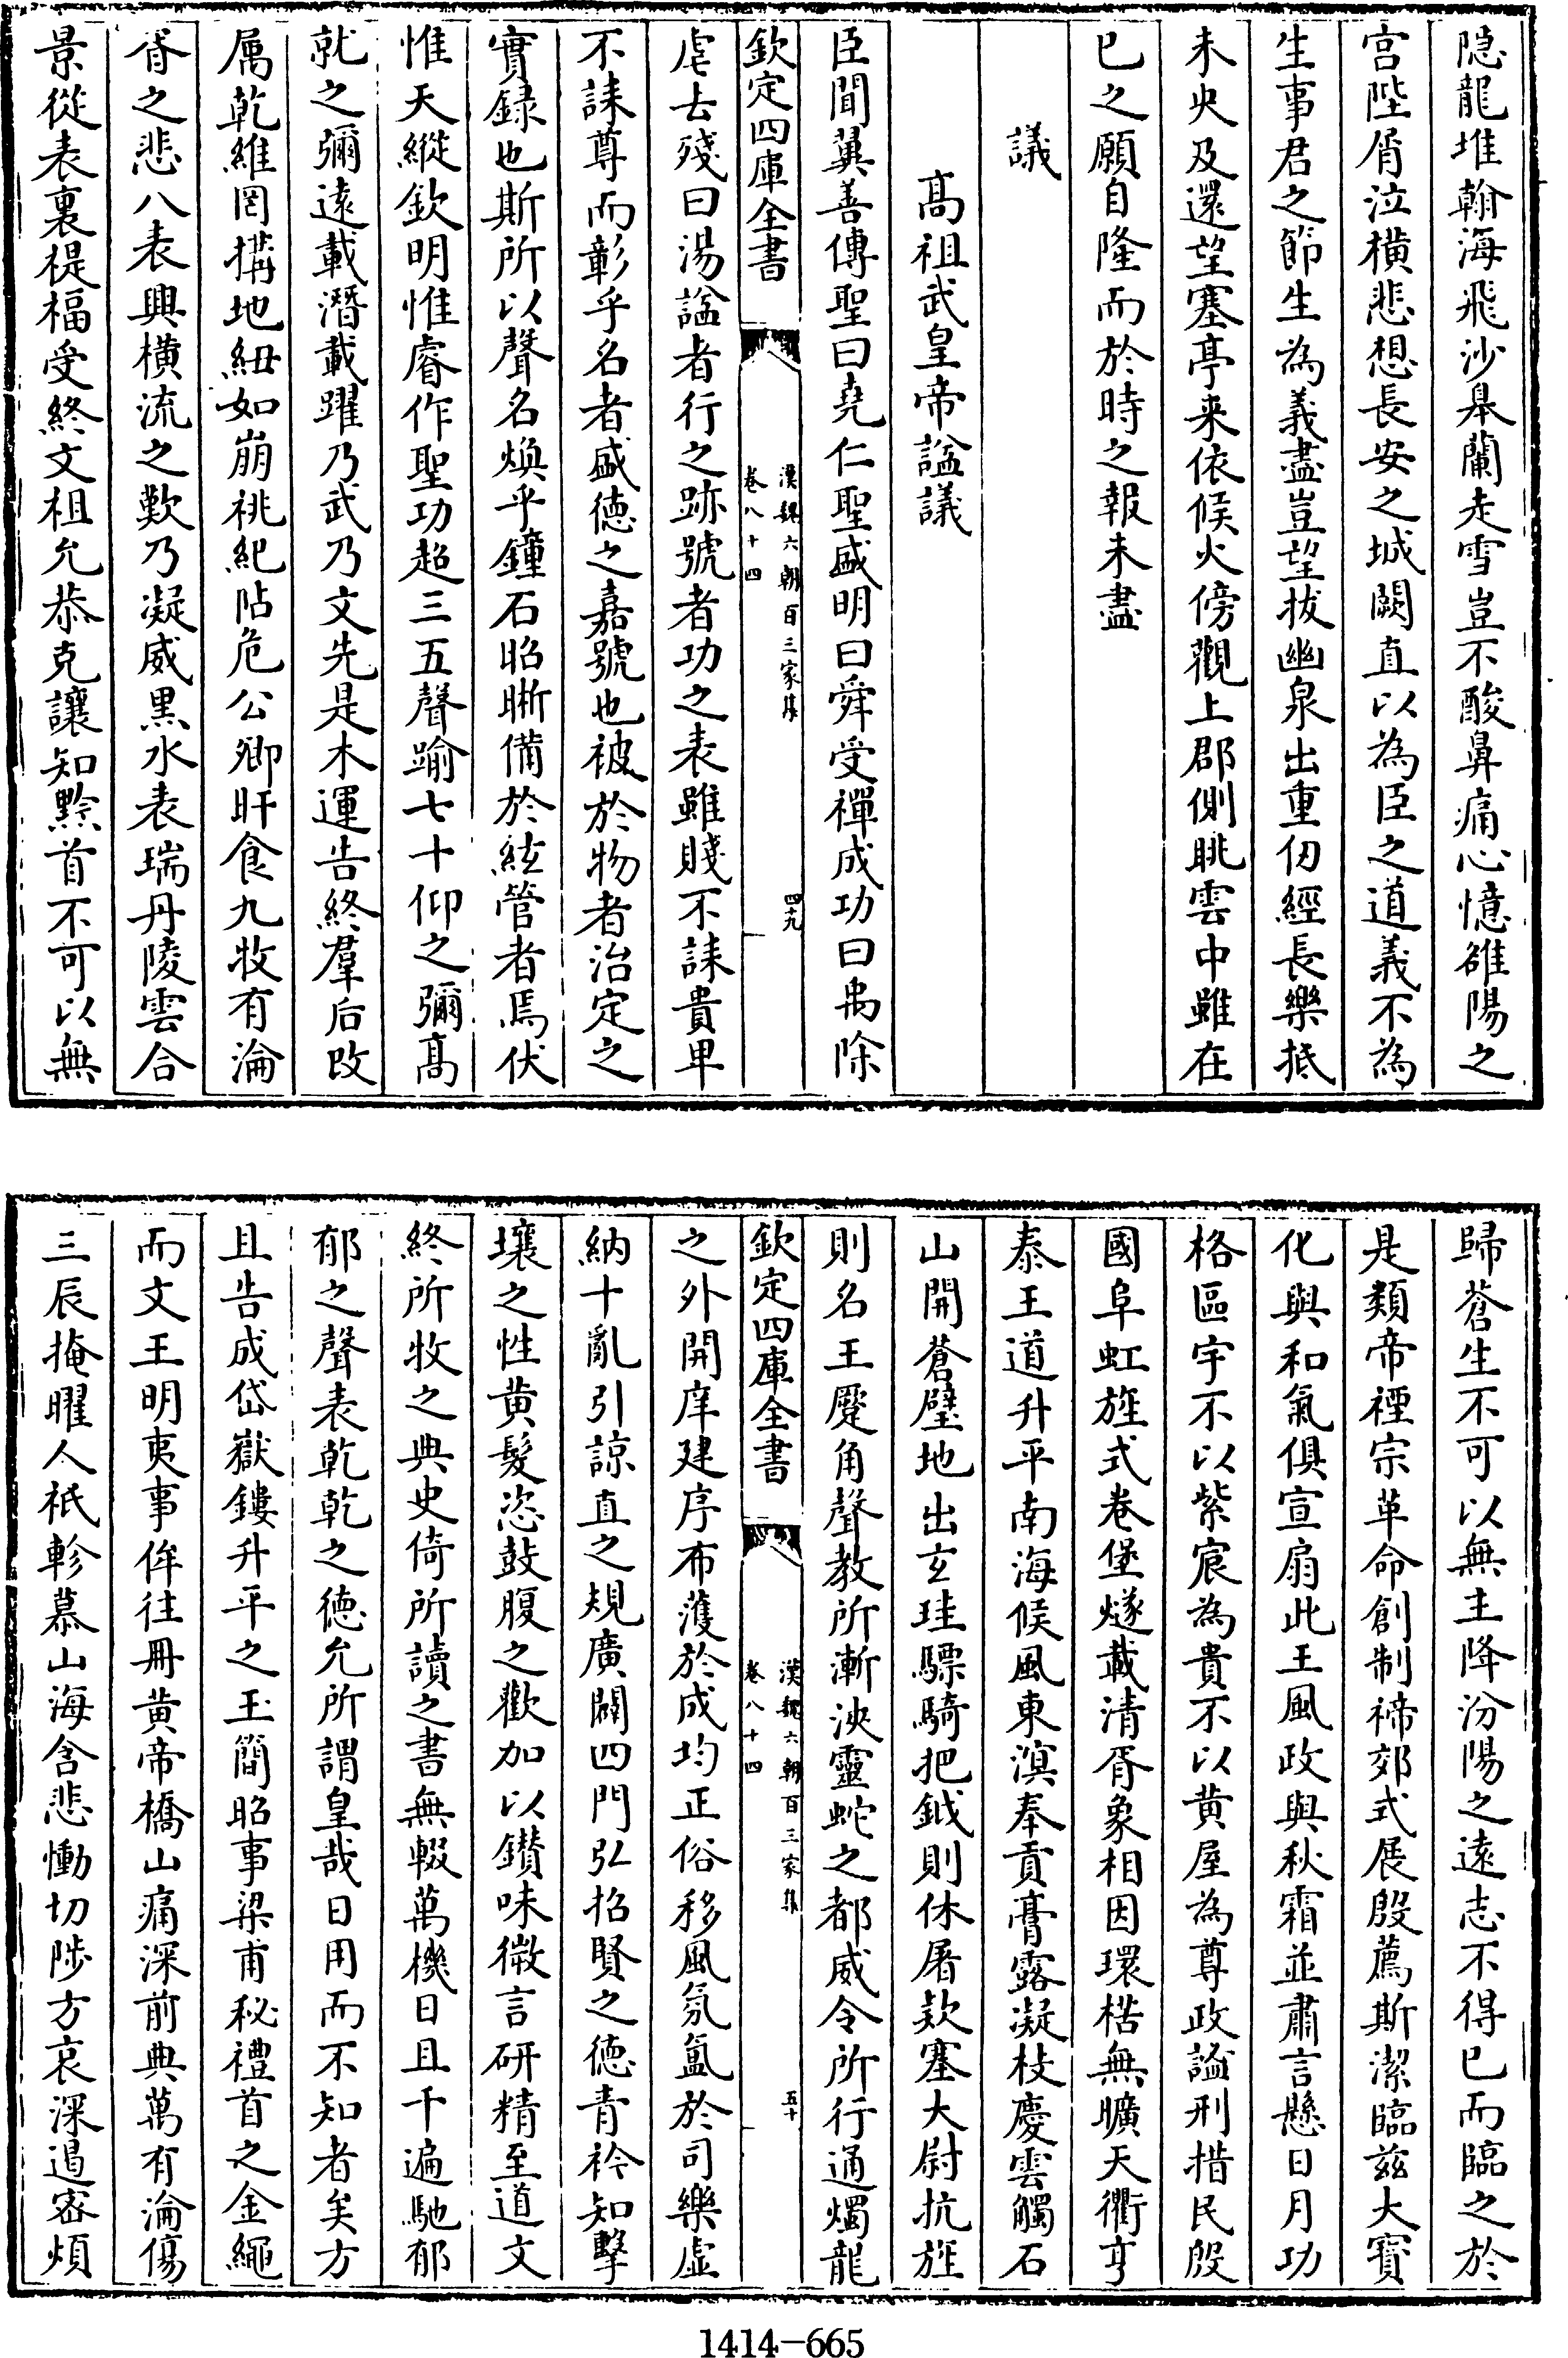 隠龍堆翰海飛沙皋蘭走雪豈不酸鼻痛心憶雒陽之
宮陛屑泣橫悲想長安之城闕直以為臣之道義不為
生事君之節生為義盡豈望拔幽泉出重仞經長樂抵
未央及還望塞亭来依候火傍觀上郡側眺雲中雖在
已之願自隆而於時之報未盡
議
高祖武皇帝諡議
臣聞翼善傳聖曰堯仁聖盛明曰舜受禪成功曰禹除
欽定四庫全書
漢魏六朝百三家集
卷八十四
四十九
虐去殘曰湯諡者行之跡號者功之表雖賤不誄貴卑
不誄尊而彰乎名者盛徳之嘉號也被於物者治定之
實錄也斯所以聲名煥乎鐘石昭晣備於絃管者焉伏
惟天縱欽明惟睿作聖功超三五聲踰七十仰之彌髙
就之彌遠載潛載躍乃武乃文先是木運告終羣后改
属乾維罔搆地紐如崩祧紀阽危公卿旰食九牧有淪
胥之悲八表興橫流之歎乃凝威黒水表瑞丹陵雲合
景從表裏禔福受終文祖允恭克讓知黔首不可以無
歸蒼生不可以無主降汾陽之遠志不得已而臨之於
是類帝禋宗革命創制禘郊式展殷薦斯潔臨兹大寳
化與和氣俱宣扇此王風政與秋霜並肅言懸日月功
格區宇不以紫宸為貴不以黄屋為尊政謐刑措民殷
國阜虹旌式卷堡燧載清胥象相因環楛無曠天衢亨
泰王道升平南海候風東溟奉貢膏露凝枝慶雲觸石
山開蒼璧地出玄珪驃騎把鉞則休屠欵塞大尉抗旌
則名王蹷角聲教所漸洟靈蛇之都威令所行通燭龍
欽定四庫全書
漢魏六朝百三家集
卷八十四
五十
之外開庠建序布濩於成均正俗移風氛氲於司樂虚
納十亂引諒直之規廣闢四門弘招賢之徳青衿知擊
壤之性黄髮恣鼓腹之歡加以鑚味微言研精至道文
終所收之典史倚所讀之書無輟萬機日且千遍馳郁
郁之聲表乾乾之徳允所謂皇哉日用而不知者矣方
且告成岱嶽鏤升平之玉簡昭事梁甫秘禮首之金繩
而文王明夷事侔往冊黄帝橋山痛深前典萬有淪傷
三辰掩曜人祇軫慕山海含悲慟切陟方哀深遏密煩
1414-665